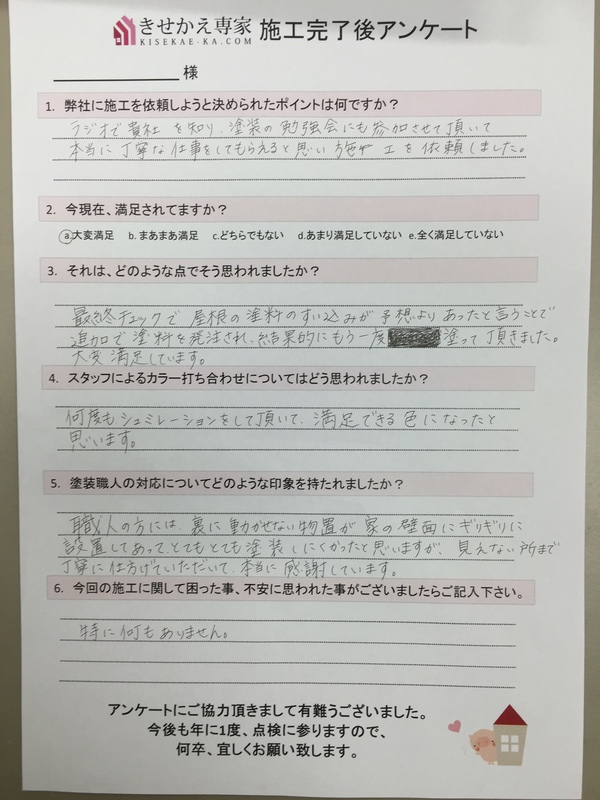 きせかえ専家
KISEKAE-KA.COM
施工完了後アンケート
様
1. 弊社に施工を依頼しようと決められたポイントは何ですか？
ラジオで貴社 を知り、塗装の勉強会にも参加させて頂いて
本当に丁寧な仕事をしてもらえると思い 施工を依頼しました。
2. 今現在、満足されてますか？
a.大変満足 b. まあまあ満足 c.どちらでもない d.あまり満足していない e.全く満足していない
3. それは、どのような点でそう思われましたか？
最終チェックで 屋根の塗料のすい込みが予想よりあったと言うことで
追加で塗料を発注され、結果的にもう一度 塗って頂きました。
大変満足しています。
4. スタッフによるカラー打ち合わせについてはどう思われましたか？
何度もシュミレーションをして頂いて、満足できる色になったと
思います。
5. 塗装職人の対応についてどのような印象を持たれましたか？
職人の方には、裏に動かせない物置が家の壁面にギリギリに
設置してあって、とてもとても塗装しにくかったと思いますが、見えない所まで
丁寧に仕上げていただいて、本当に感謝しています。
6. 今回の施工に関して困った事、不安に思われた事がございましたらご記入下さい。
特に何もありません。
アンケートにご協力頂きまして有難うございました。
今後も年に1度、点検に参りますので、
何卒、宜しくお願い致します。